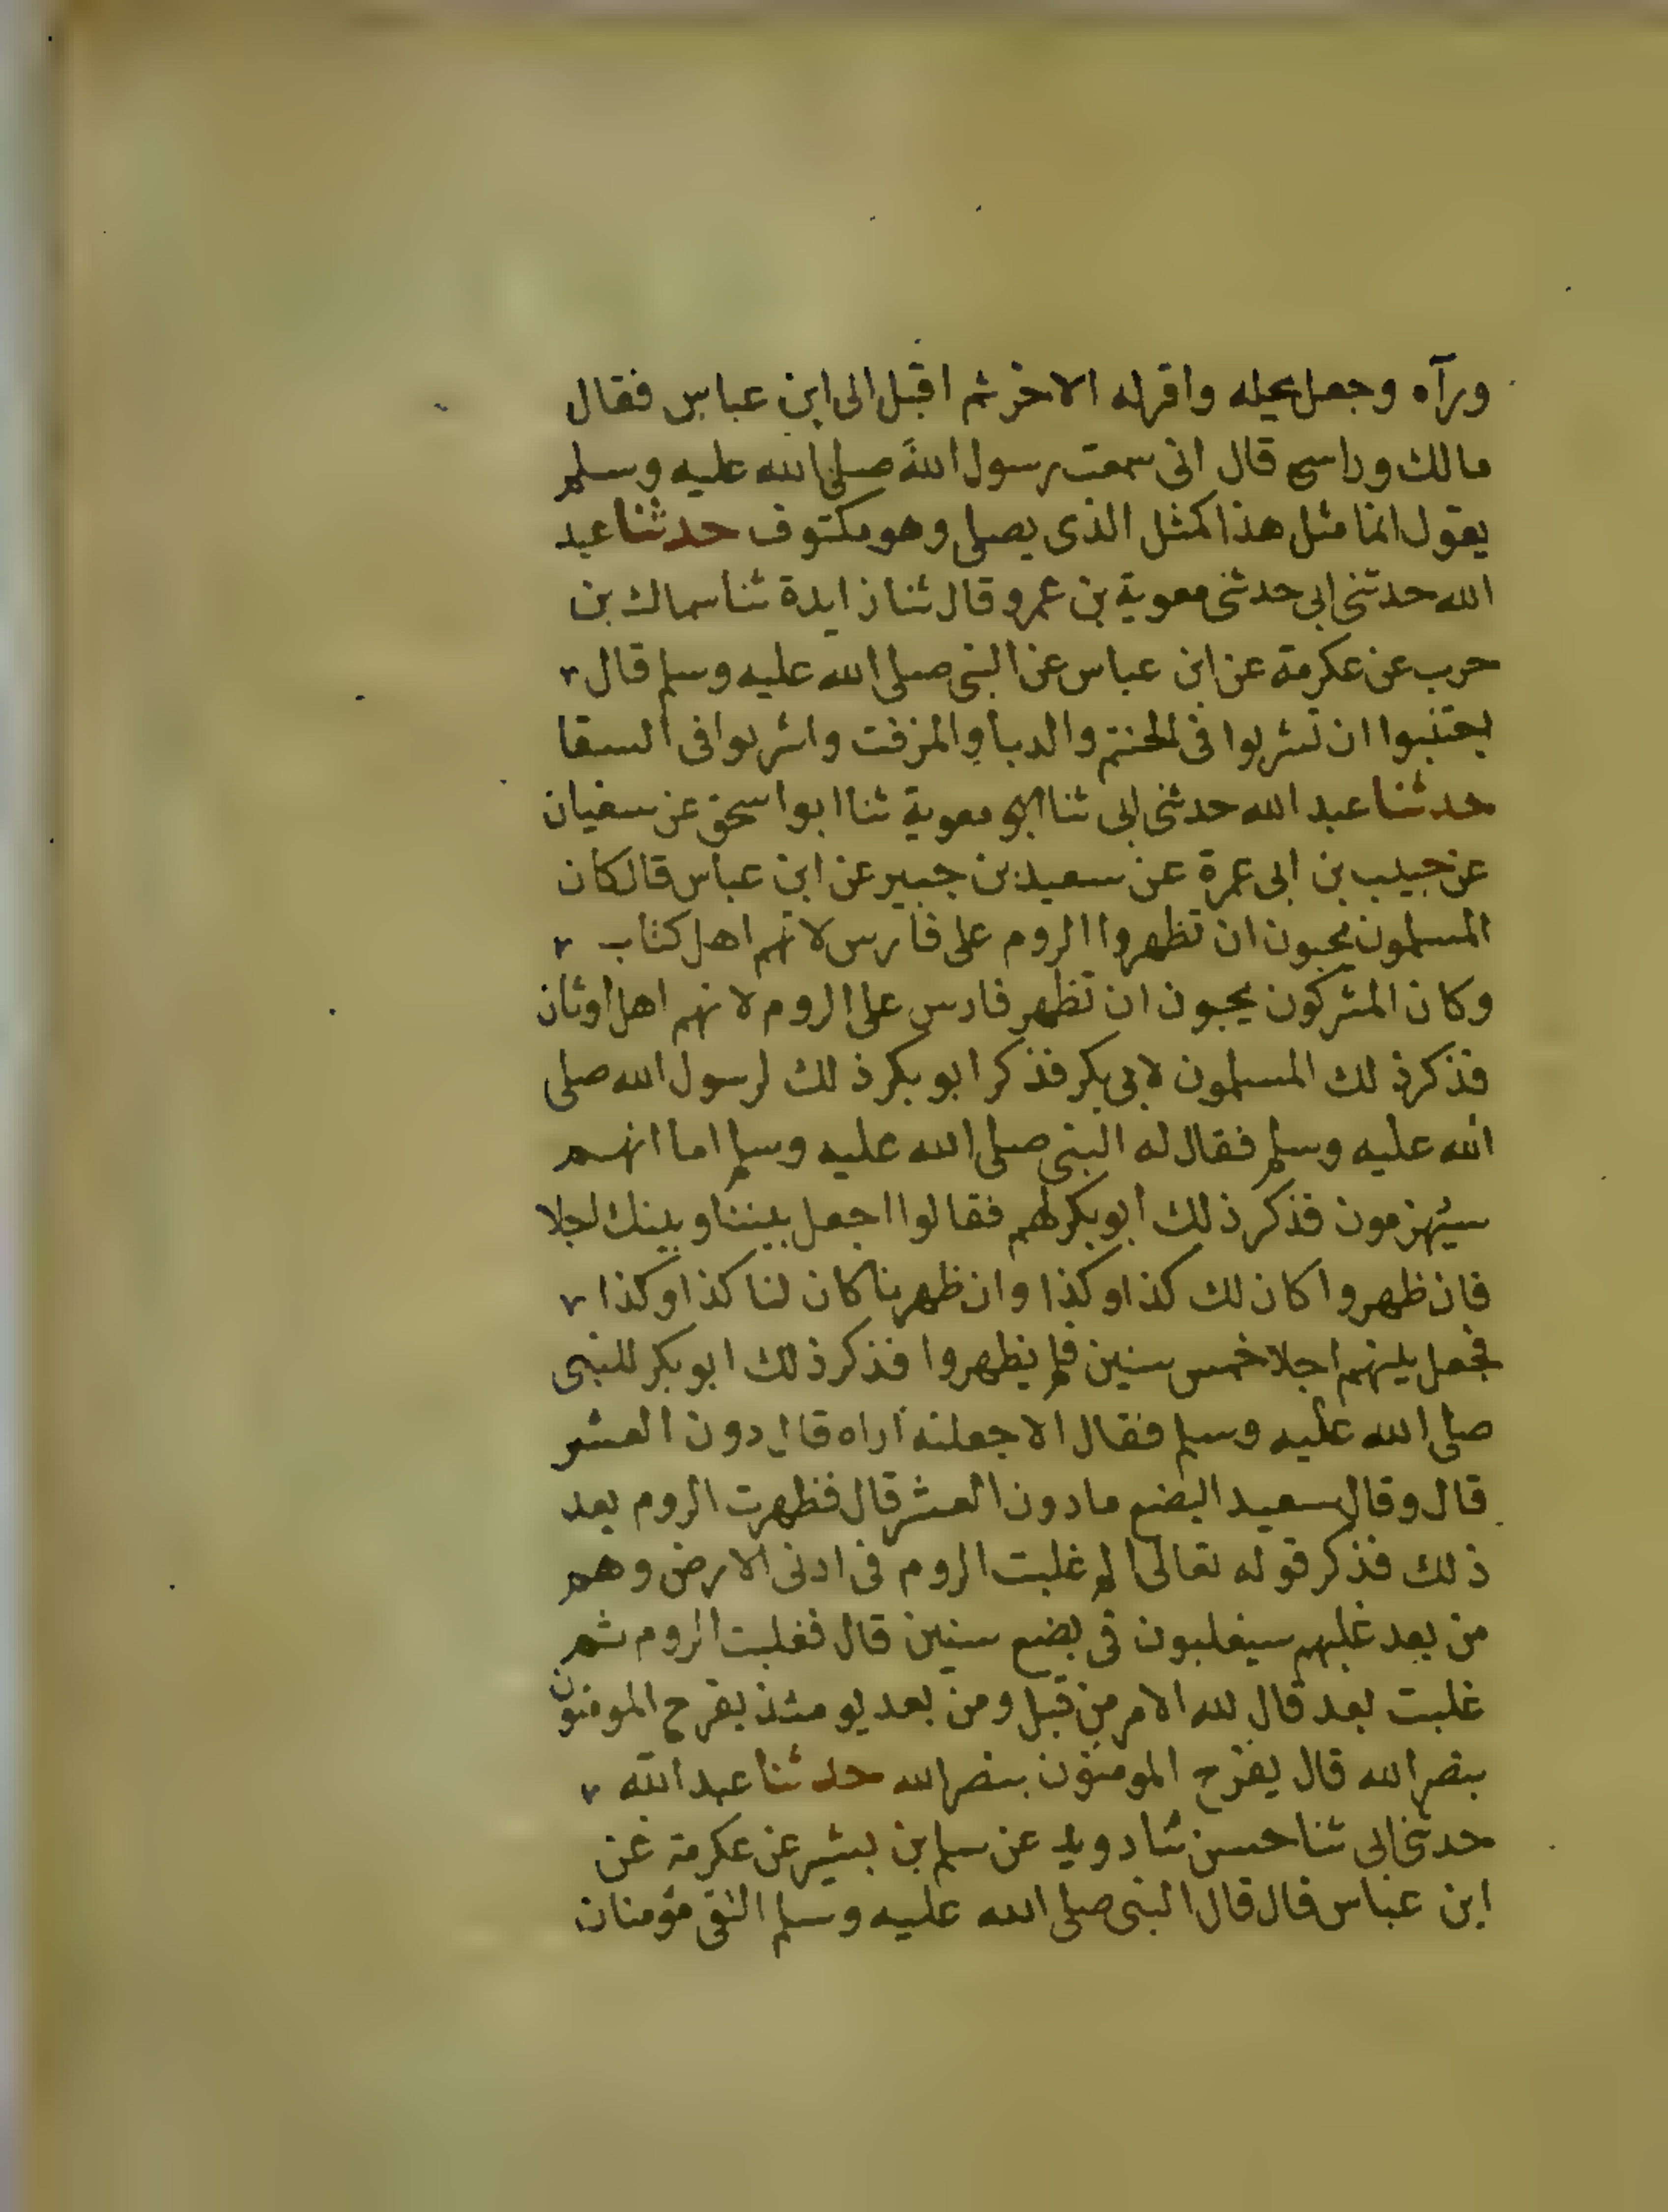 ورآه وجعل يحله واقر له الاخر ثم اقبل الى ابن عباس فقال
مالك وراسي قال انى سمعت رسول الله صلى الله عليه وسلم
يقول انما مثل هذا كمثل الذى يصلى وهو مكتوف حدثنا عبد
الله حدثنى ابى حدثنى معوية بن عمرو قال ثنا زايدة ثنا سماك بن
حرب عن عكرمة عن ابن عباس عن النبى صلى الله عليه وسلم قال
اجتنبوا ان تشربوا فى الحنتم والدبا والمزفت واشربوا فى السقا
حدثنا عبد الله حدثنى ابى ثنا ابو معوية ثنا ابو اسحق عن سفيان
عن حبيب بن ابى عمرة عن سعيد بن جبير عن ابن عباس قال كان
المسلمون يحبون ان تظهروا الروم على فارس لانهم اهل كتاب
وكان المشركون يحبون ان تظهر فارس على الروم لانهم اهل اوثان
فذكر ذلك المسلمون لابى بكر فذكر ابو بكر ذلك لرسول الله صلى
الله عليه وسلم فقال له النبى صلى الله عليه وسلم اما انهم
سيُهزمون فذكر ذلك ابو بكر لهم فقالوا اجعل بيننا وبينك اجلا
فان ظهروا كان لك كذا وكذا وان ظهرنا كان لنا كذا وكذا
فجعل بينهم اجلا خمس سنين فلم يظهروا فذكر ذلك ابو بكر للنبى
صلى الله عليه وسلم فقال الا جعلته اراه قال دون العشر
قال وقال سعيد البضع ما دون العشر قال فظهرت الروم بعد
ذلك فذكر قوله تعالى الم غلبت الروم فى ادنى الارض وهم
من بعد غلبهم سيغلبون فى بضع سنين قال فغلبت الروم ثم
غلبت بعد قال لله الامر من قبل ومن بعد يومئذ يفرح المومنون
بنصر الله قال يفرح المومنون بنصر الله حدثنا عبد الله
حدثنى ابى ثنا حسن ثنا دويد عن سلم بن بشير عن عكرمة عن
ابن عباس قال قال النبى صلى الله عليه وسلم التقى مؤمنان